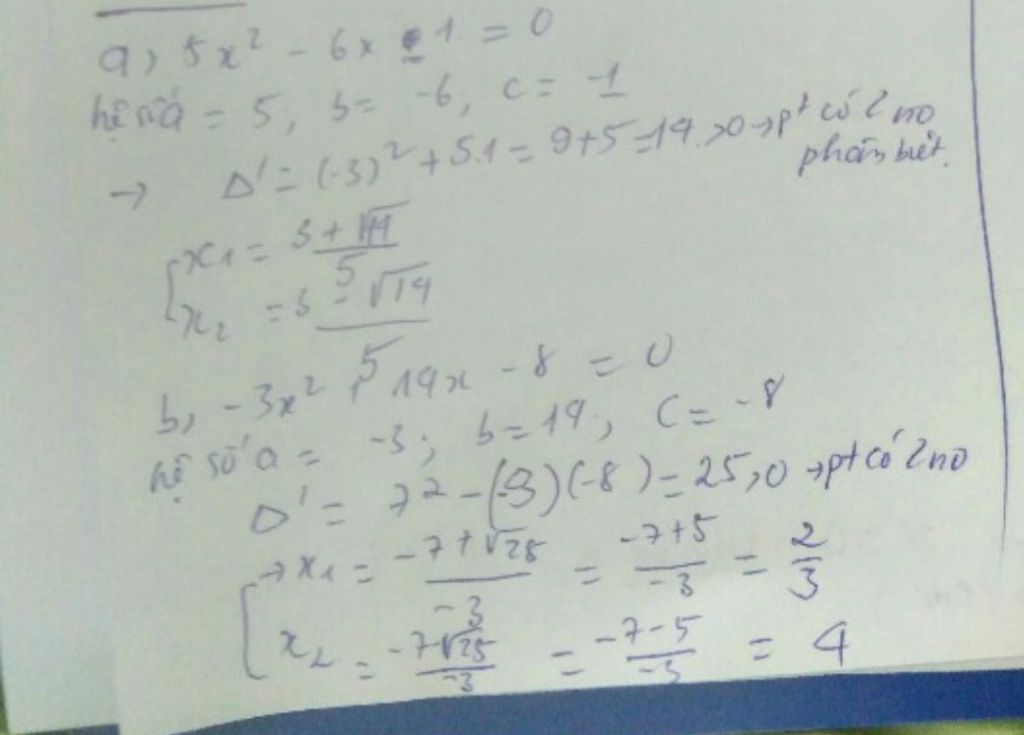 a) 5x² - 6x - 1 = 0
hệ số a = 5, b = -6, c = -1
→ Δ' = (-3)² + 5.1 = 9 + 5 = 14 > 0 → pt có 2 no
phân biệt.
x₁ = 3 + √14 / 5
x₂ = 3 - √14 / 5
b, -3x² + 14x - 8 = 0
hệ số a = -3; b = 14; c = -8
Δ' = 7² - (-3)(-8) = 25 > 0 → pt có 2 no
→ x₁ = -7 + √25 / -3 = -7 + 5 / -3 = 2/3
x₂ = -7 - √25 / -3 = -7 - 5 / -3 = 4